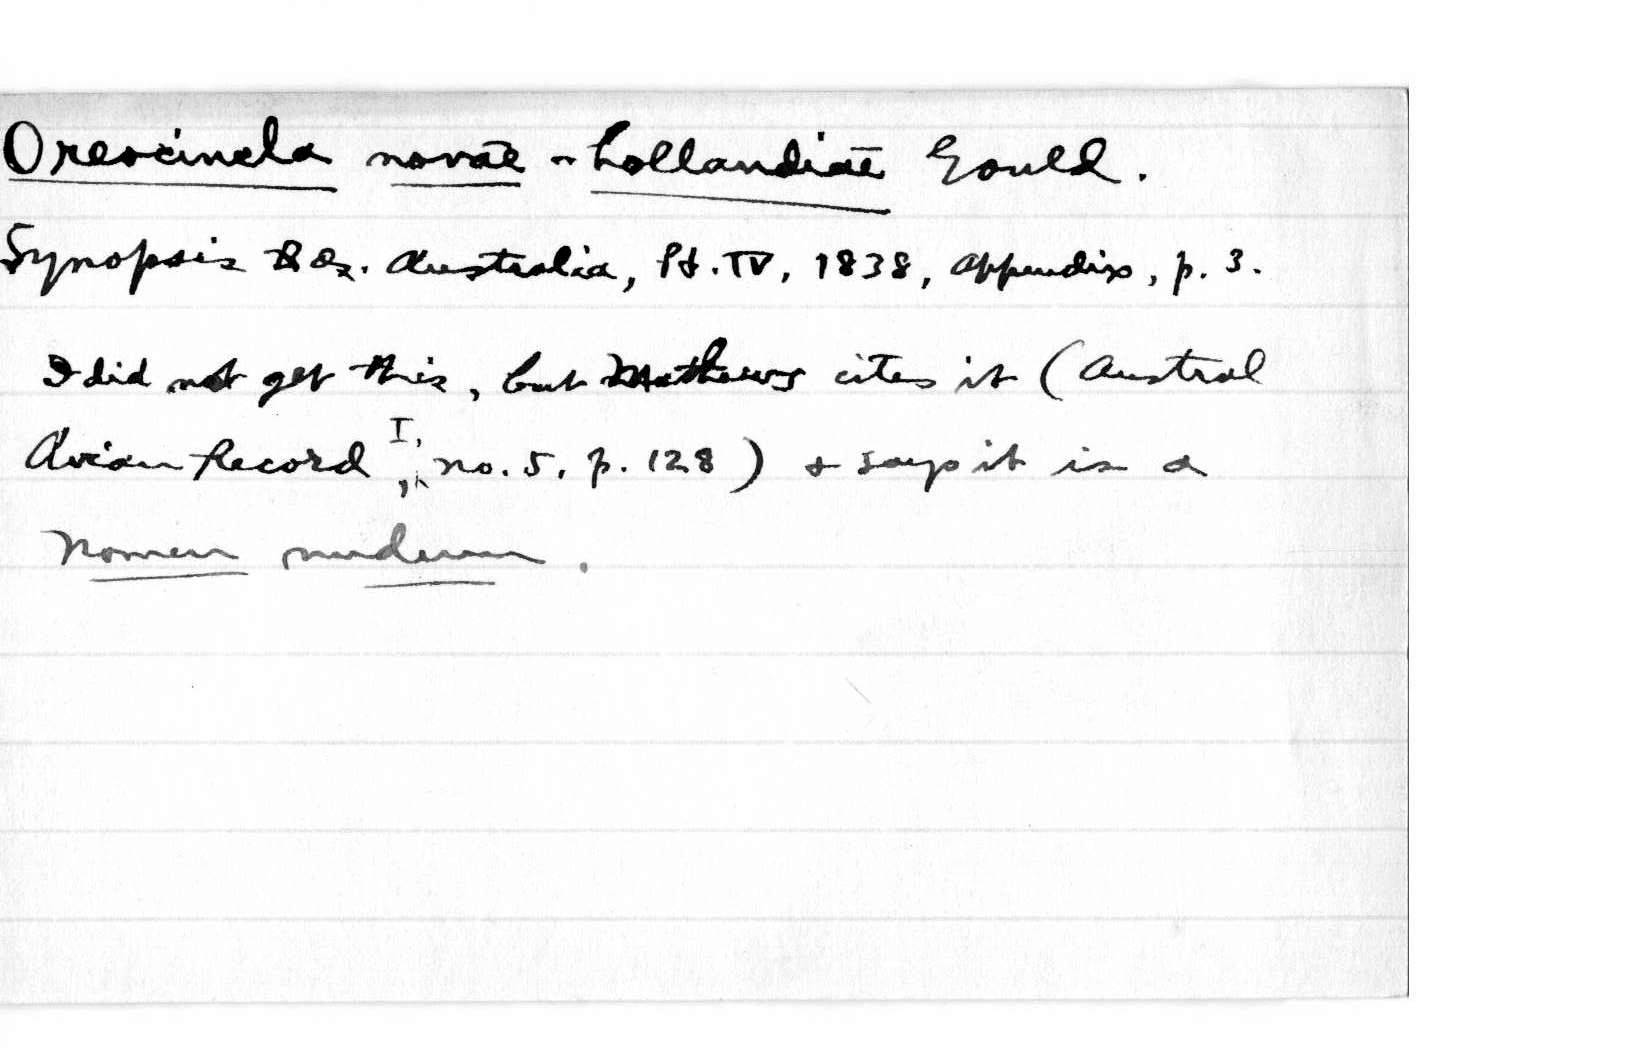 Oreocincla novae-hollandiae Gould.
Synopsis Bds. Australia, Pt. IV, 1838, appendix, p. 3.
I did not get this, but Mathews cites it (Austral
Avian Record, I, no. 5, p. 128) & says it is a
nomen nudum.